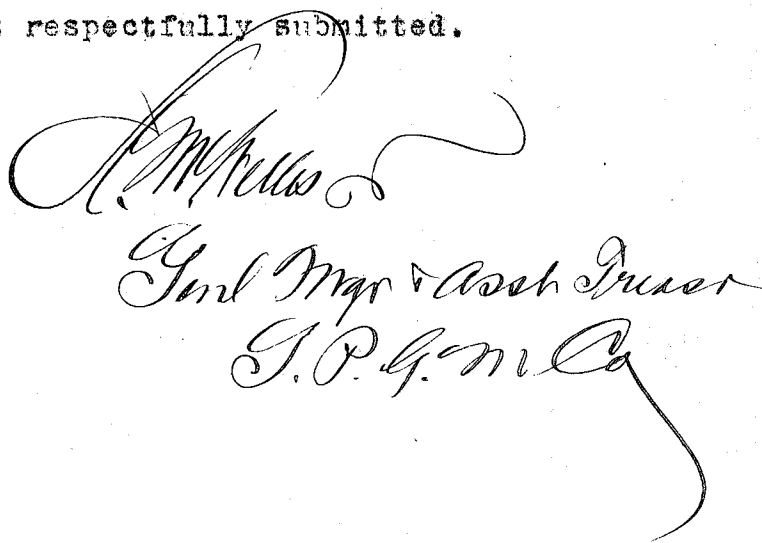 respectfully submitted.
A. M. Wells
Genl Mgr & Asst Treasr
G. P. G. M Co